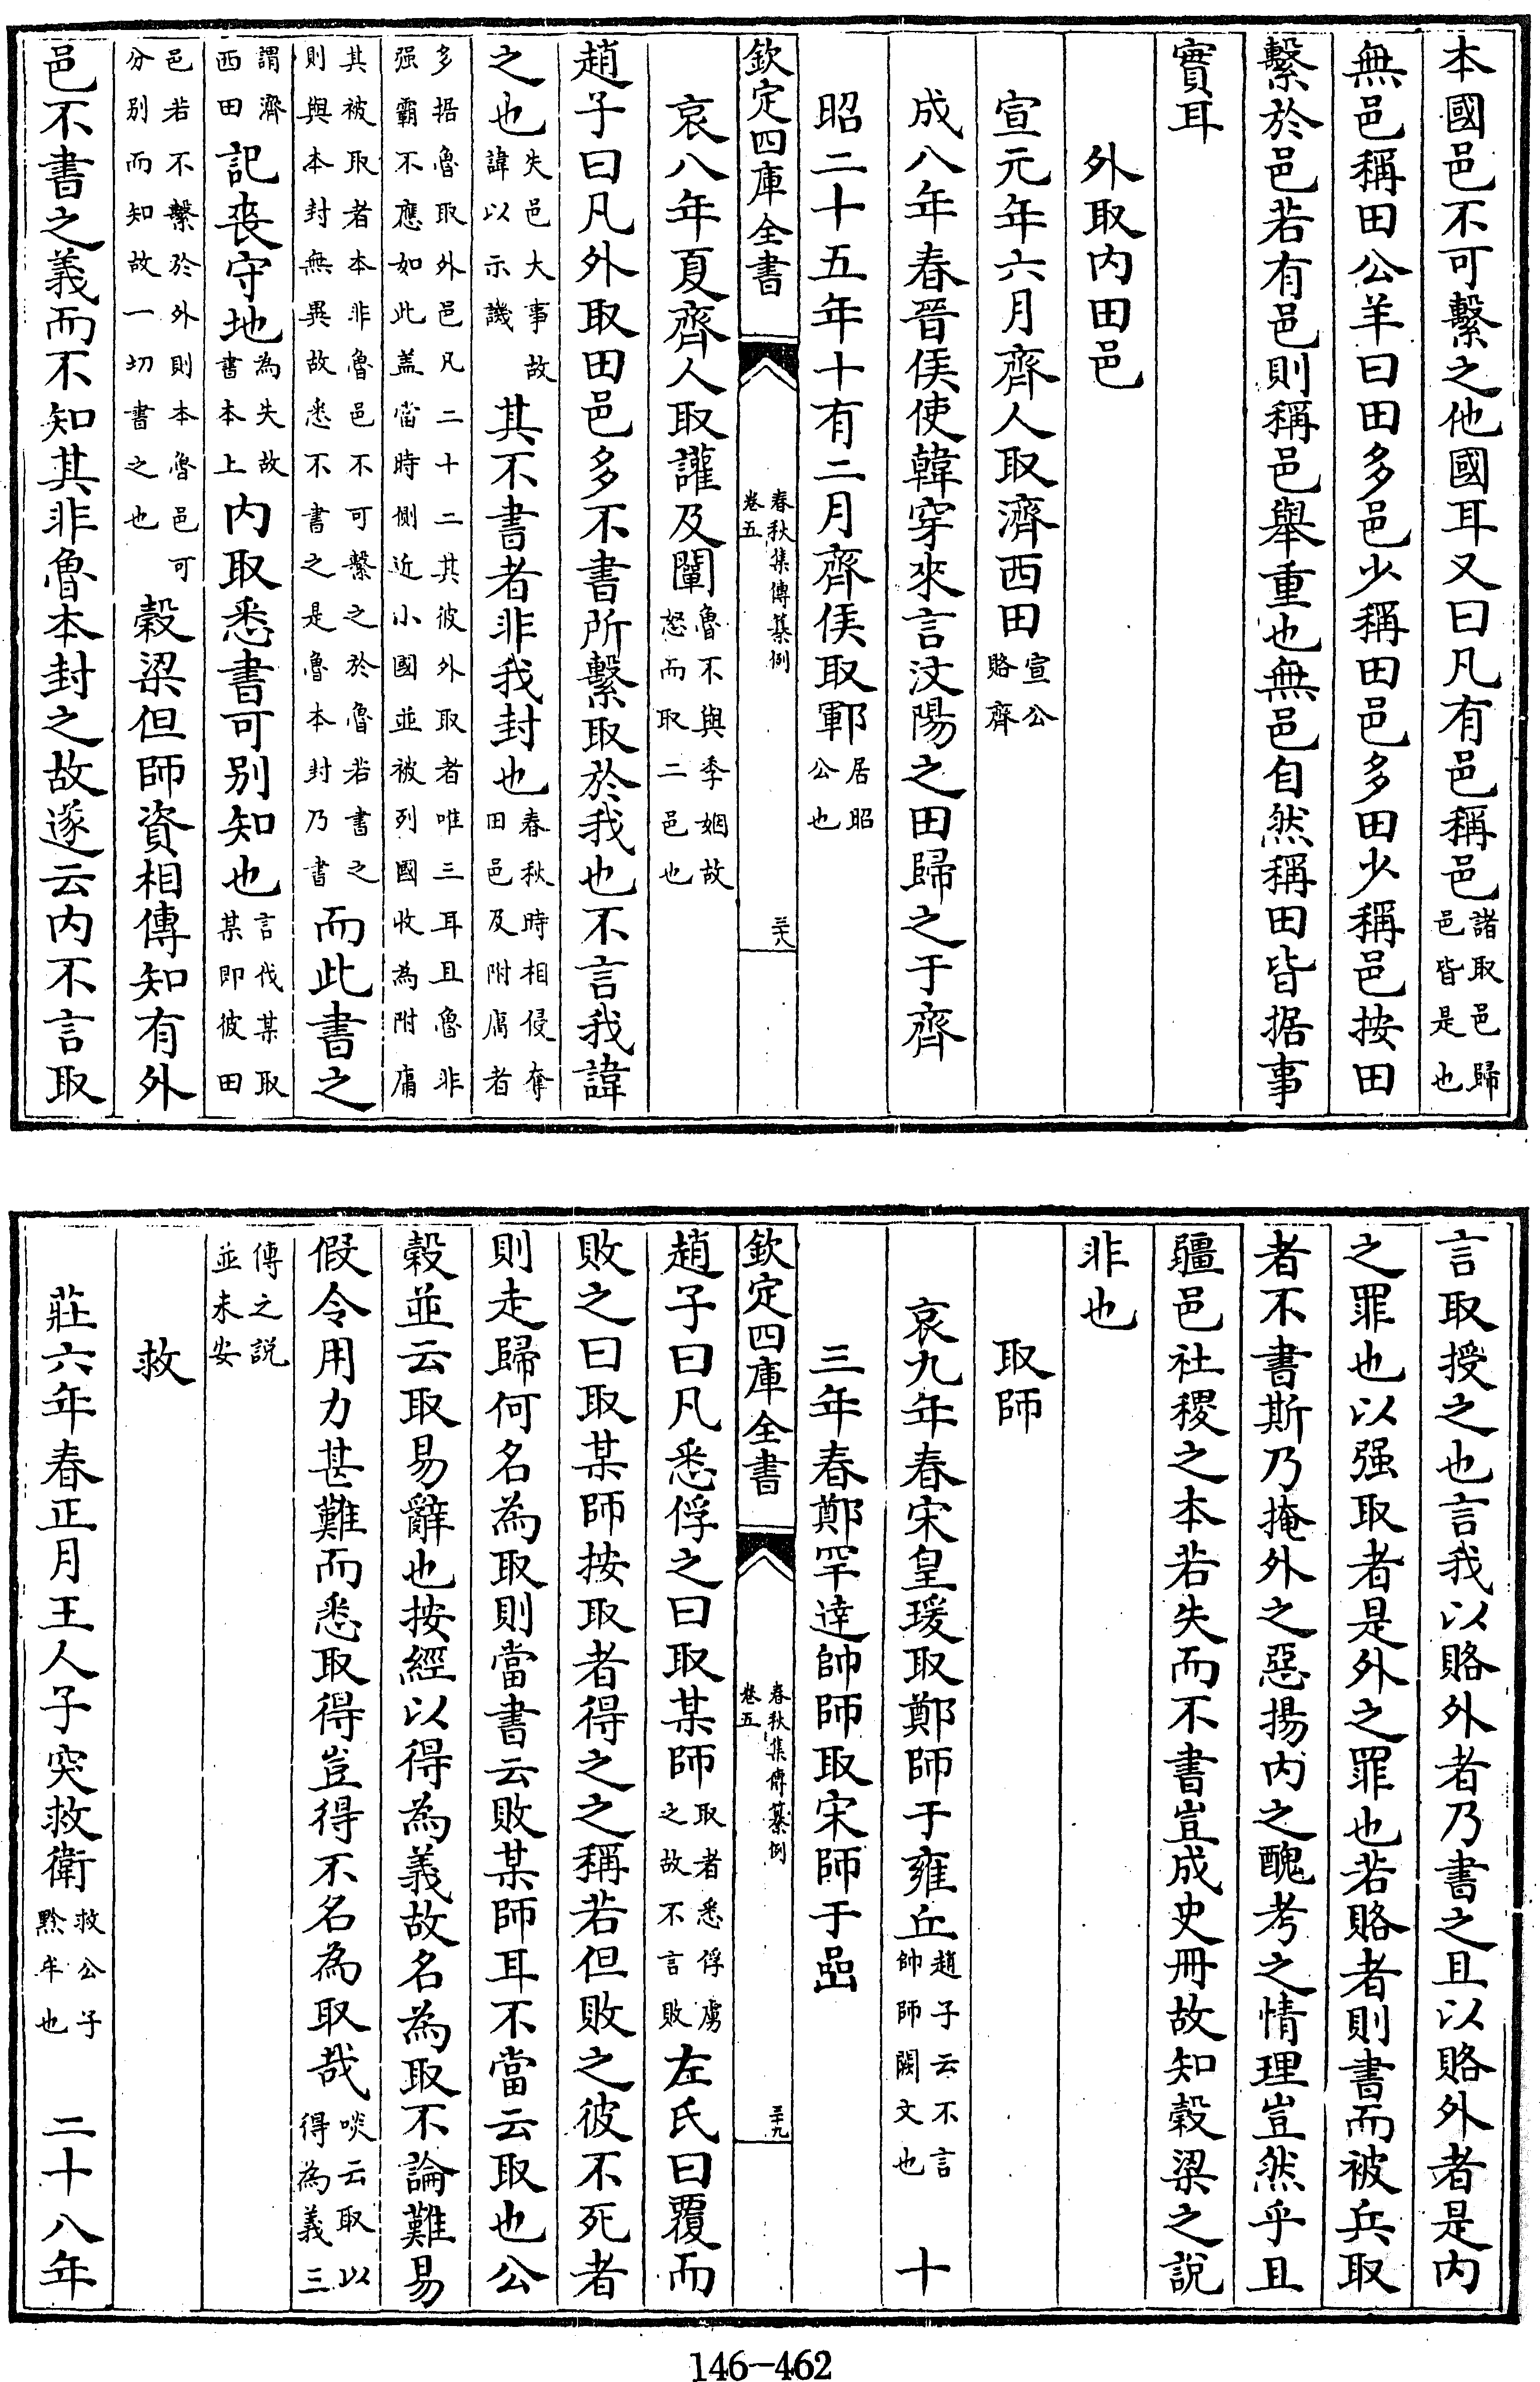 本國邑不可繫之他國耳又曰凡有邑稱邑諸取邑歸邑皆是也
無邑稱田公羊曰田多邑少稱田邑多田少稱邑按田
繫於邑若有邑則稱邑舉重也無邑自然稱田皆据事
實耳
外取内田邑
宣元年六月齊人取濟西田宣公賂齊
成八年春晉侯使韓穿來言汶陽之田歸之于齊
昭二十五年十有二月齊侯取鄆居昭公也
欽定四庫全書 春秋集傳纂例 卷五 三十八
哀八年夏齊人取讙及闡魯不與季姬故怒而取二邑也
趙子曰凡外取田邑多不書所繫取於我也不言我諱
之也失邑大事故諱以示譏其不書者非我封也春秋時相侵奪田邑及附庸者
多据魯取外邑凡二十二其彼外取者唯三耳且魯非强霸不應如此盖當時側近小國並被列國收為附庸
其被取者本非魯邑不可繫之於魯若書之則與本封無異故悉不書之是魯本封乃書而此書之
謂濟西田記喪守地為失故書本上内取悉書可别知也言伐某取某即彼田
邑若不繫於外則本魯邑可分别而知故一切書之也穀梁但師資相傳知有外
邑不書之義而不知其非魯本封之故遂云内不言取
言取授之也言我以賂外者乃書之且以賂外者是内
之罪也以强取者是外之罪也若賂者則書而被兵取
者不書斯乃掩外之惡揚内之醜考之情理豈然乎且
疆邑社稷之本若失而不書豈成史冊故知穀梁之說
非也
取師
哀九年春宋皇瑗取鄭師于雍丘趙子云不言帥師闕文也 十
三年春鄭罕達帥師取宋師于嵒
欽定四庫全書 春秋集傳纂例 卷五 三十九
趙子曰凡悉俘之曰取某師取者悉俘虜之故不言敗左氏曰覆而
敗之曰取某師按取者得之之稱若但敗之彼不死者
則走歸何名為取則當書云敗某師耳不當云取也公
穀並云取易辭也按經以得為義故名為取不論難易
假令用力甚難而悉取得豈得不名為取哉啖云取以得為義三
傳之説並未安
救
莊六年春正月王人子突救衛救公子黔牟也 二十八年
146-462